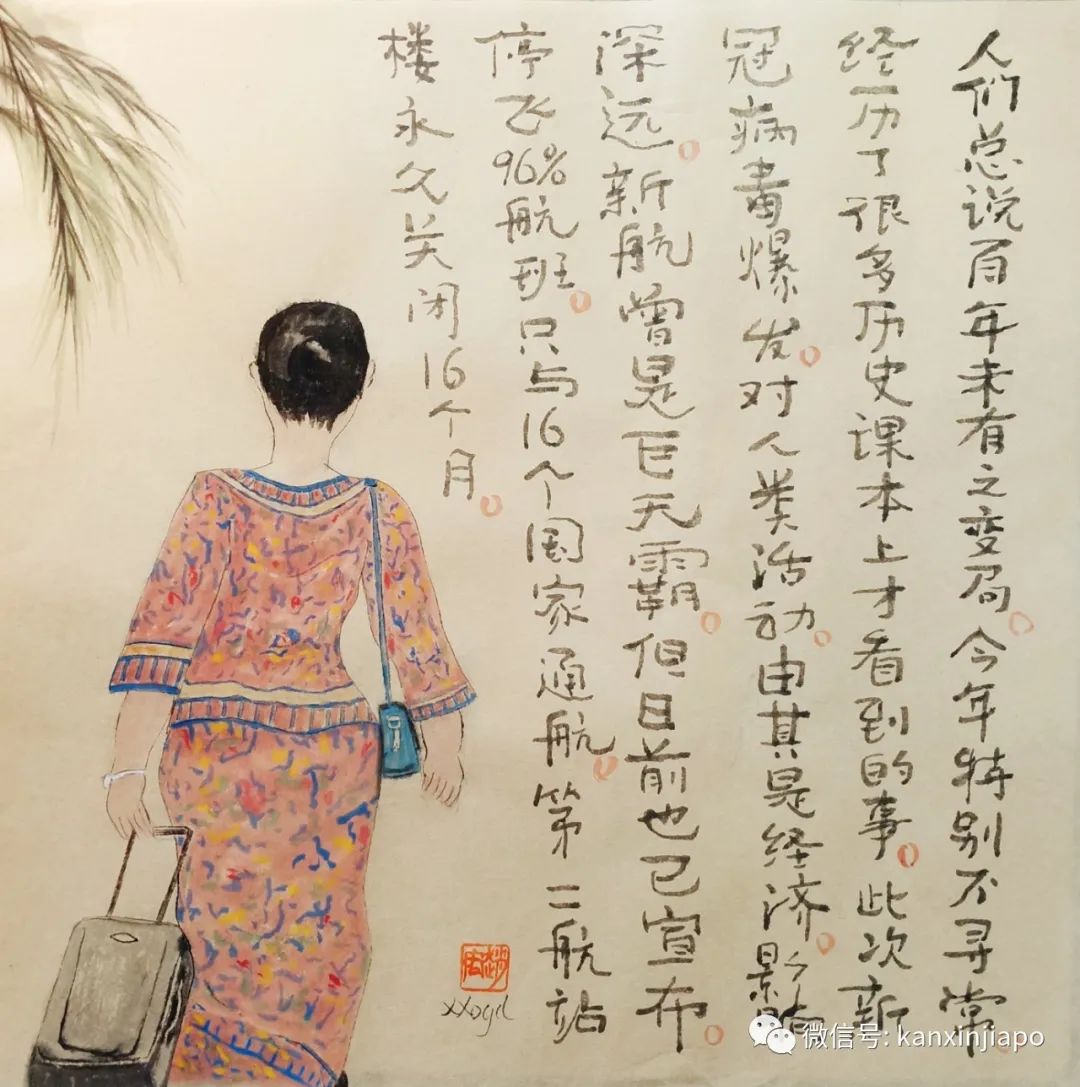 人们总说百年未有之变局。今年特别不寻常。
经历了很多历史课本上才看到的事。此次新
冠病毒爆发。对人类活动。由其是经济。影响
深远。新航曾是巨无霸。但日前也已宣布。
停飞96%航班。只与16个国家通航。第二航站
楼永久关闭16个月。
微信号: kanxinjiapo